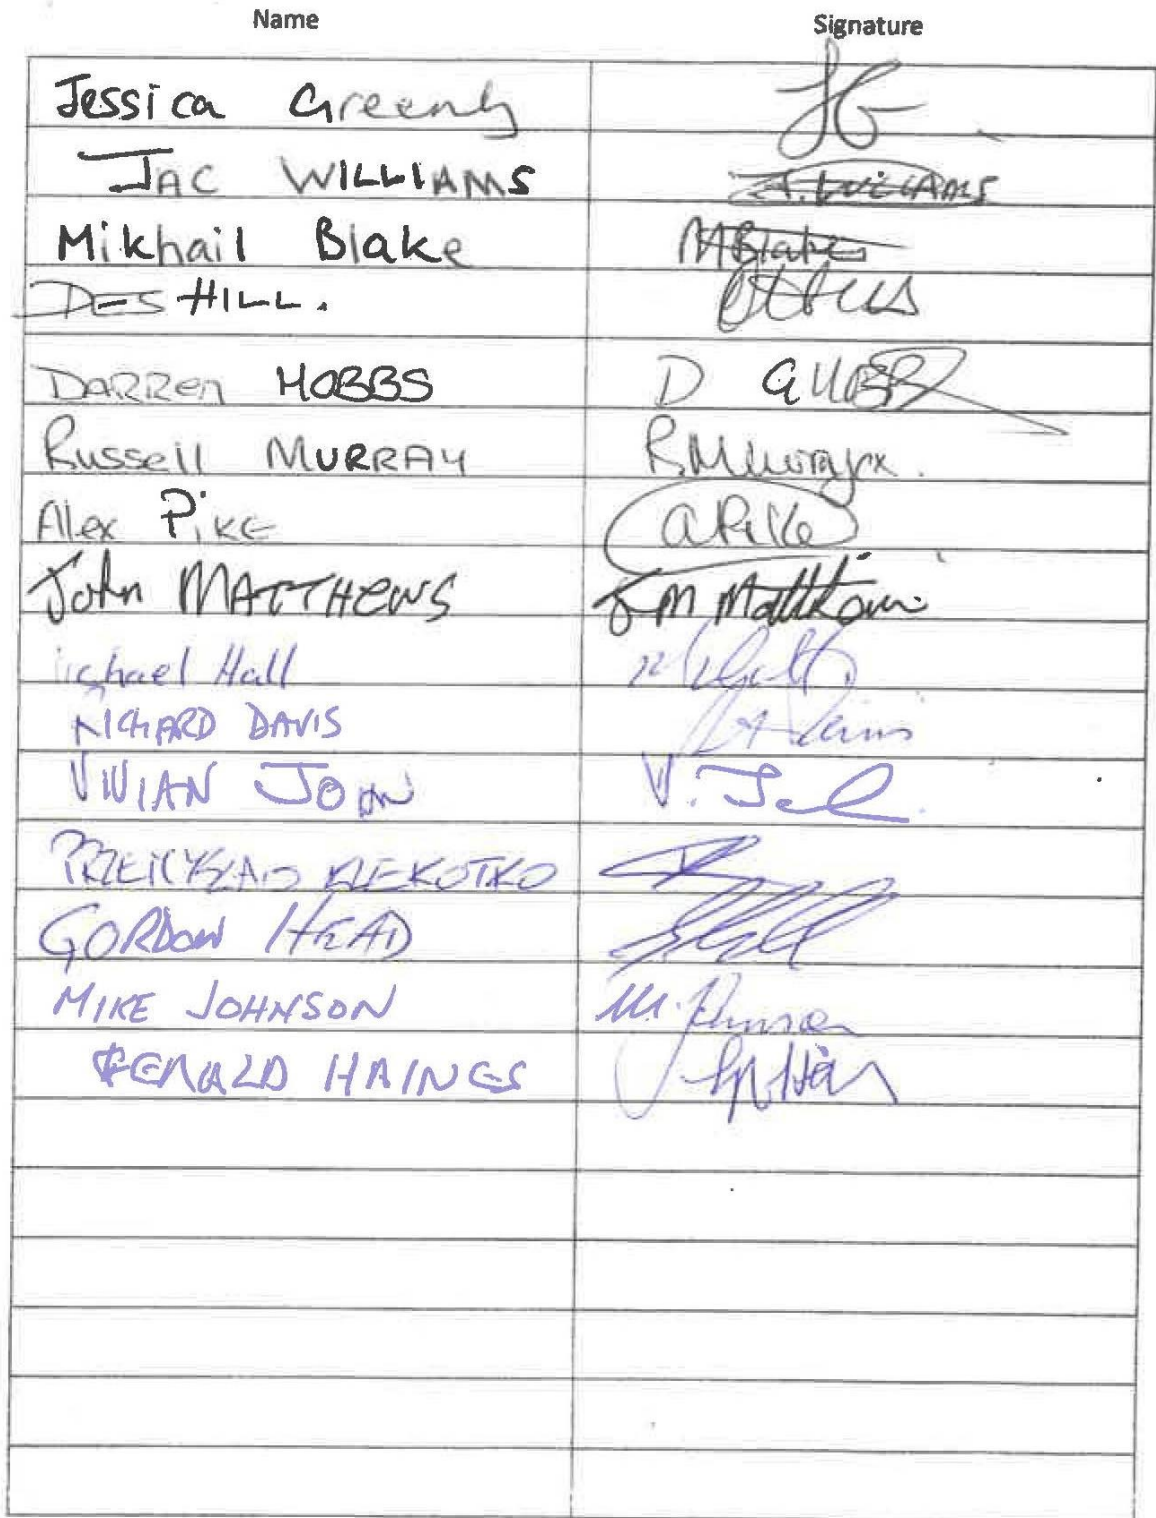 Name Signature
Jessica Greenly JG
JAC WILLIAMS J. WILLIAMS
Mikhail Blake MBlake
DES HILL.
DARREN HOBBS D
Russell MURRAY R.M Murray
Alex Pike a Pike
John MATTHEWS J M Matthews
ichael Hall
RICHARD DAVIS
VIVIAN JOHN V. Joh
KLEKOTKO
GORDON HEAD
MIKE JOHNSON M. Johnson
GERALD HAINGS